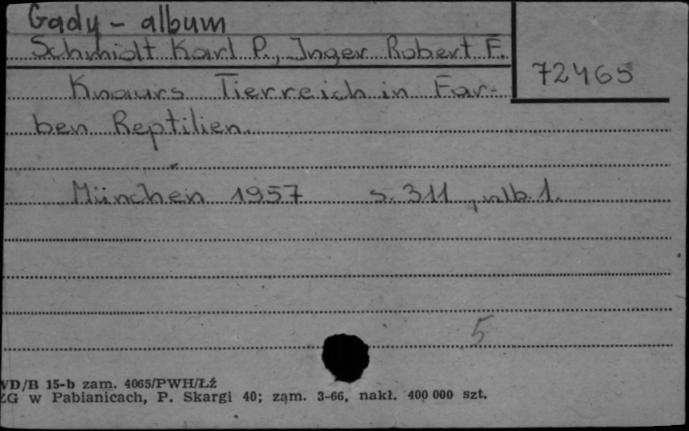 Gady - album
Schmidt Karl P., Inger Robert F.
72465
Knaurs Tierreich in Far-
ben Reptilien.
München 1957 s. 311, nlb. 1.
5
VD/B 15-b zam. 4065/PWH/Łź
ZG w Pabianicach, P. Skargi 40; zam. 3-66, nakł. 400 000 szt.